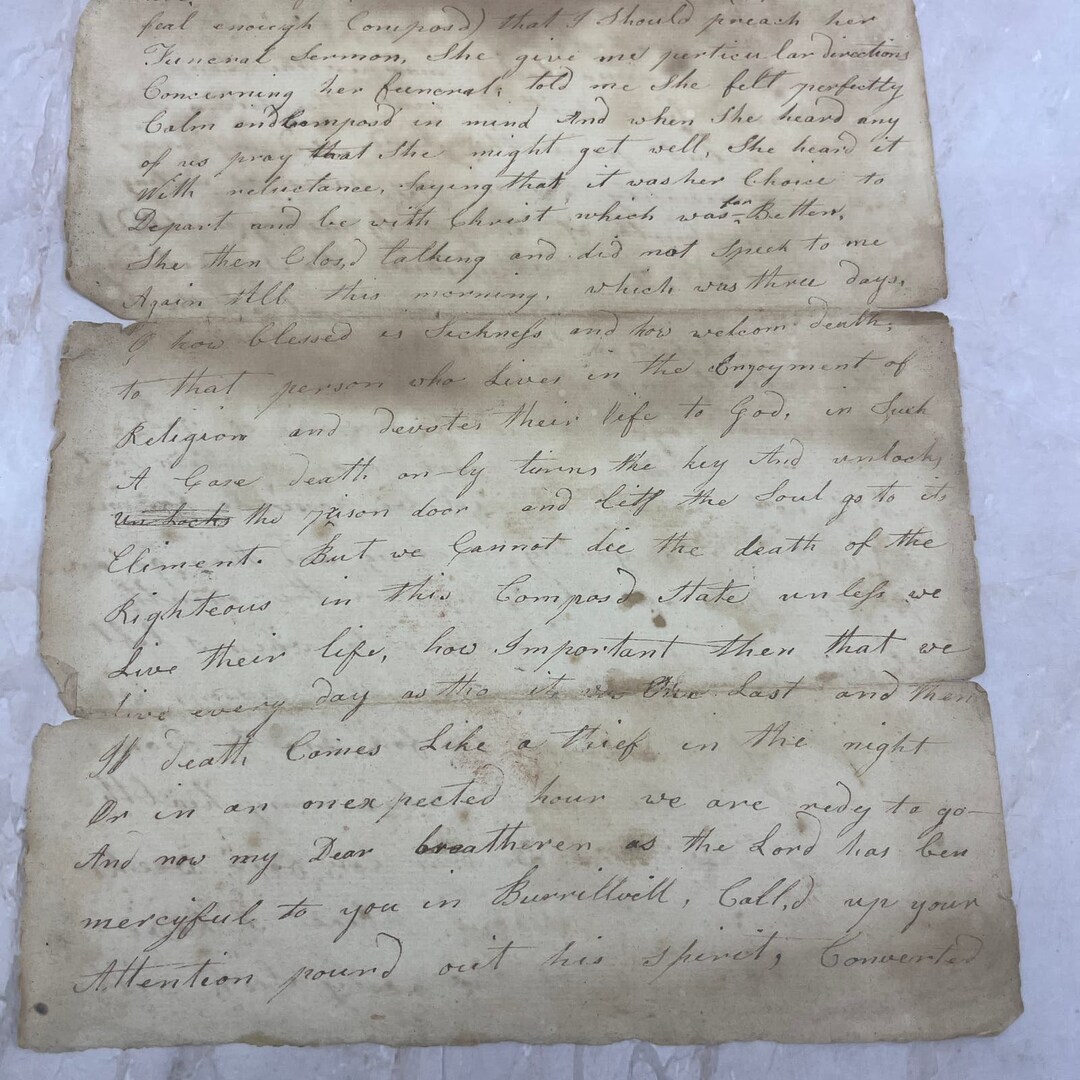 feal enouigh Composd) that I Should preach her
Funeral Sermon, She give me perticular directions
Concerning her funeral; told me She felt perfectly
Calm and Composd in mind And when She heard any
of us pray that She might get well, She heard it
With reluctance, Saying that it was her Choice to
Depart and be with Christ which was far Better,
She then Clos,d talking and did not Speek to me
Again till this morning, which was three days,
O how blessed is Sickness and how welcom death;
to that person who Lives in the Enjoyment of
Religion and devotes their life to God, in Such
A Case death on-ly turns the key And unlocks
un-Locks the prison door and lets the Soul go to its
Eliment. But we Cannot die the death of the
Righteous in this Composd State unless we
Live their life, how Important then that we
live every day as tho it was Our Last and then
If death Comes Like a thief in the night
Or in an onexpected hour we are redy to go—
And now my Dear breatheren as the Lord has ben
mercyful to you in Burrillvill, Call,d up your
Attention pourd out his spirit, Converted